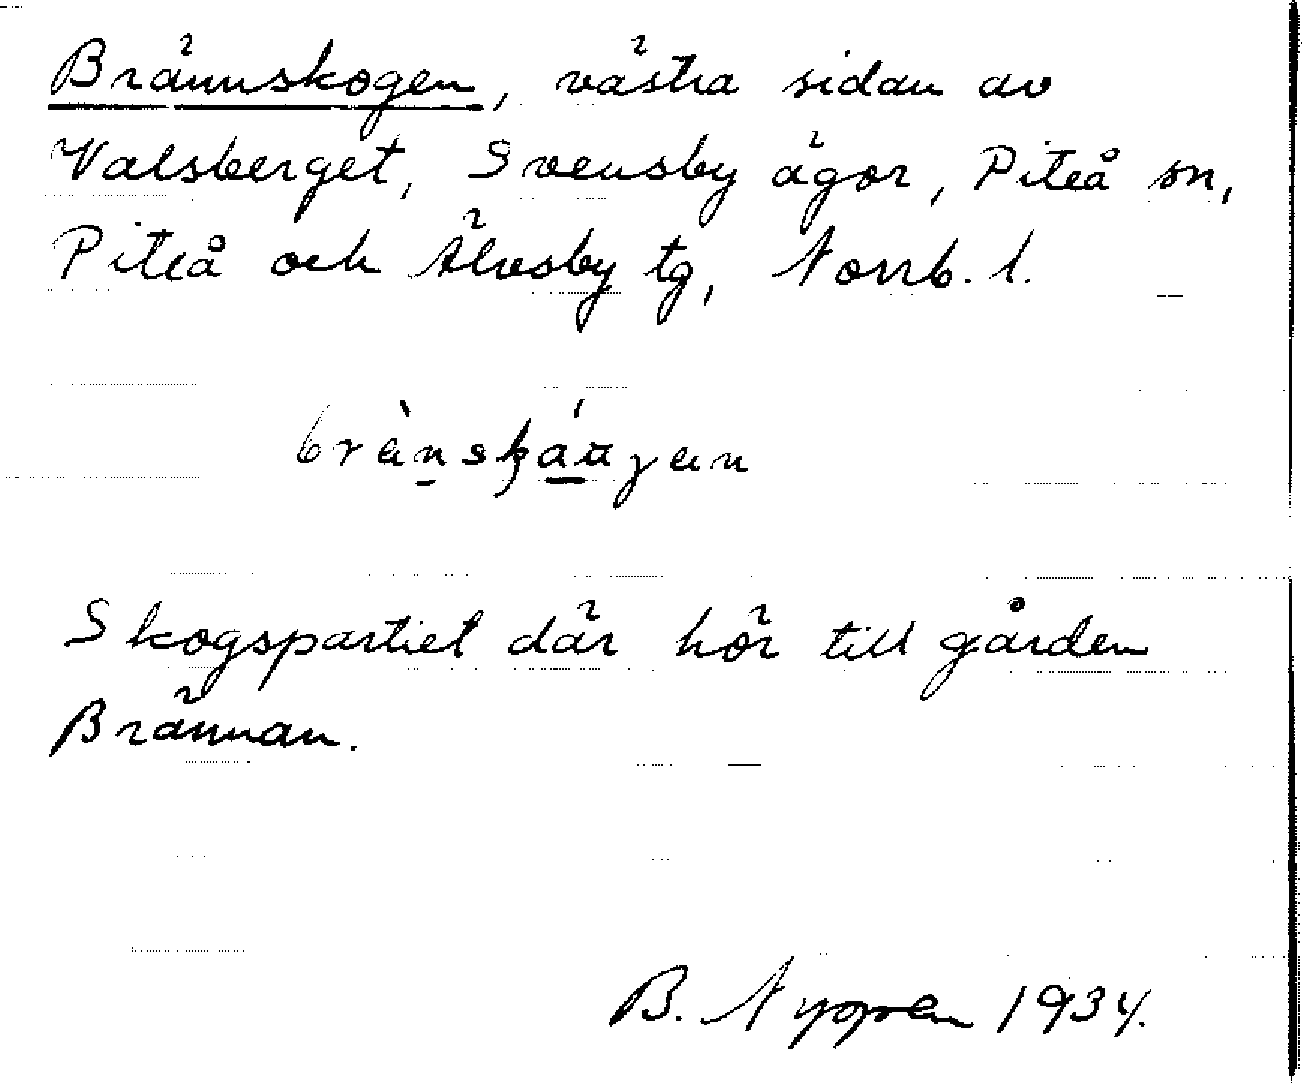 Brännskogen, västra sidan av
Valsberget, Svensby ägor, Piteå sn,
Piteå och Älvsby tg, Norrb. l.
Skogspartiet där hör till gården
Brännan.
B. Nygren 1934.